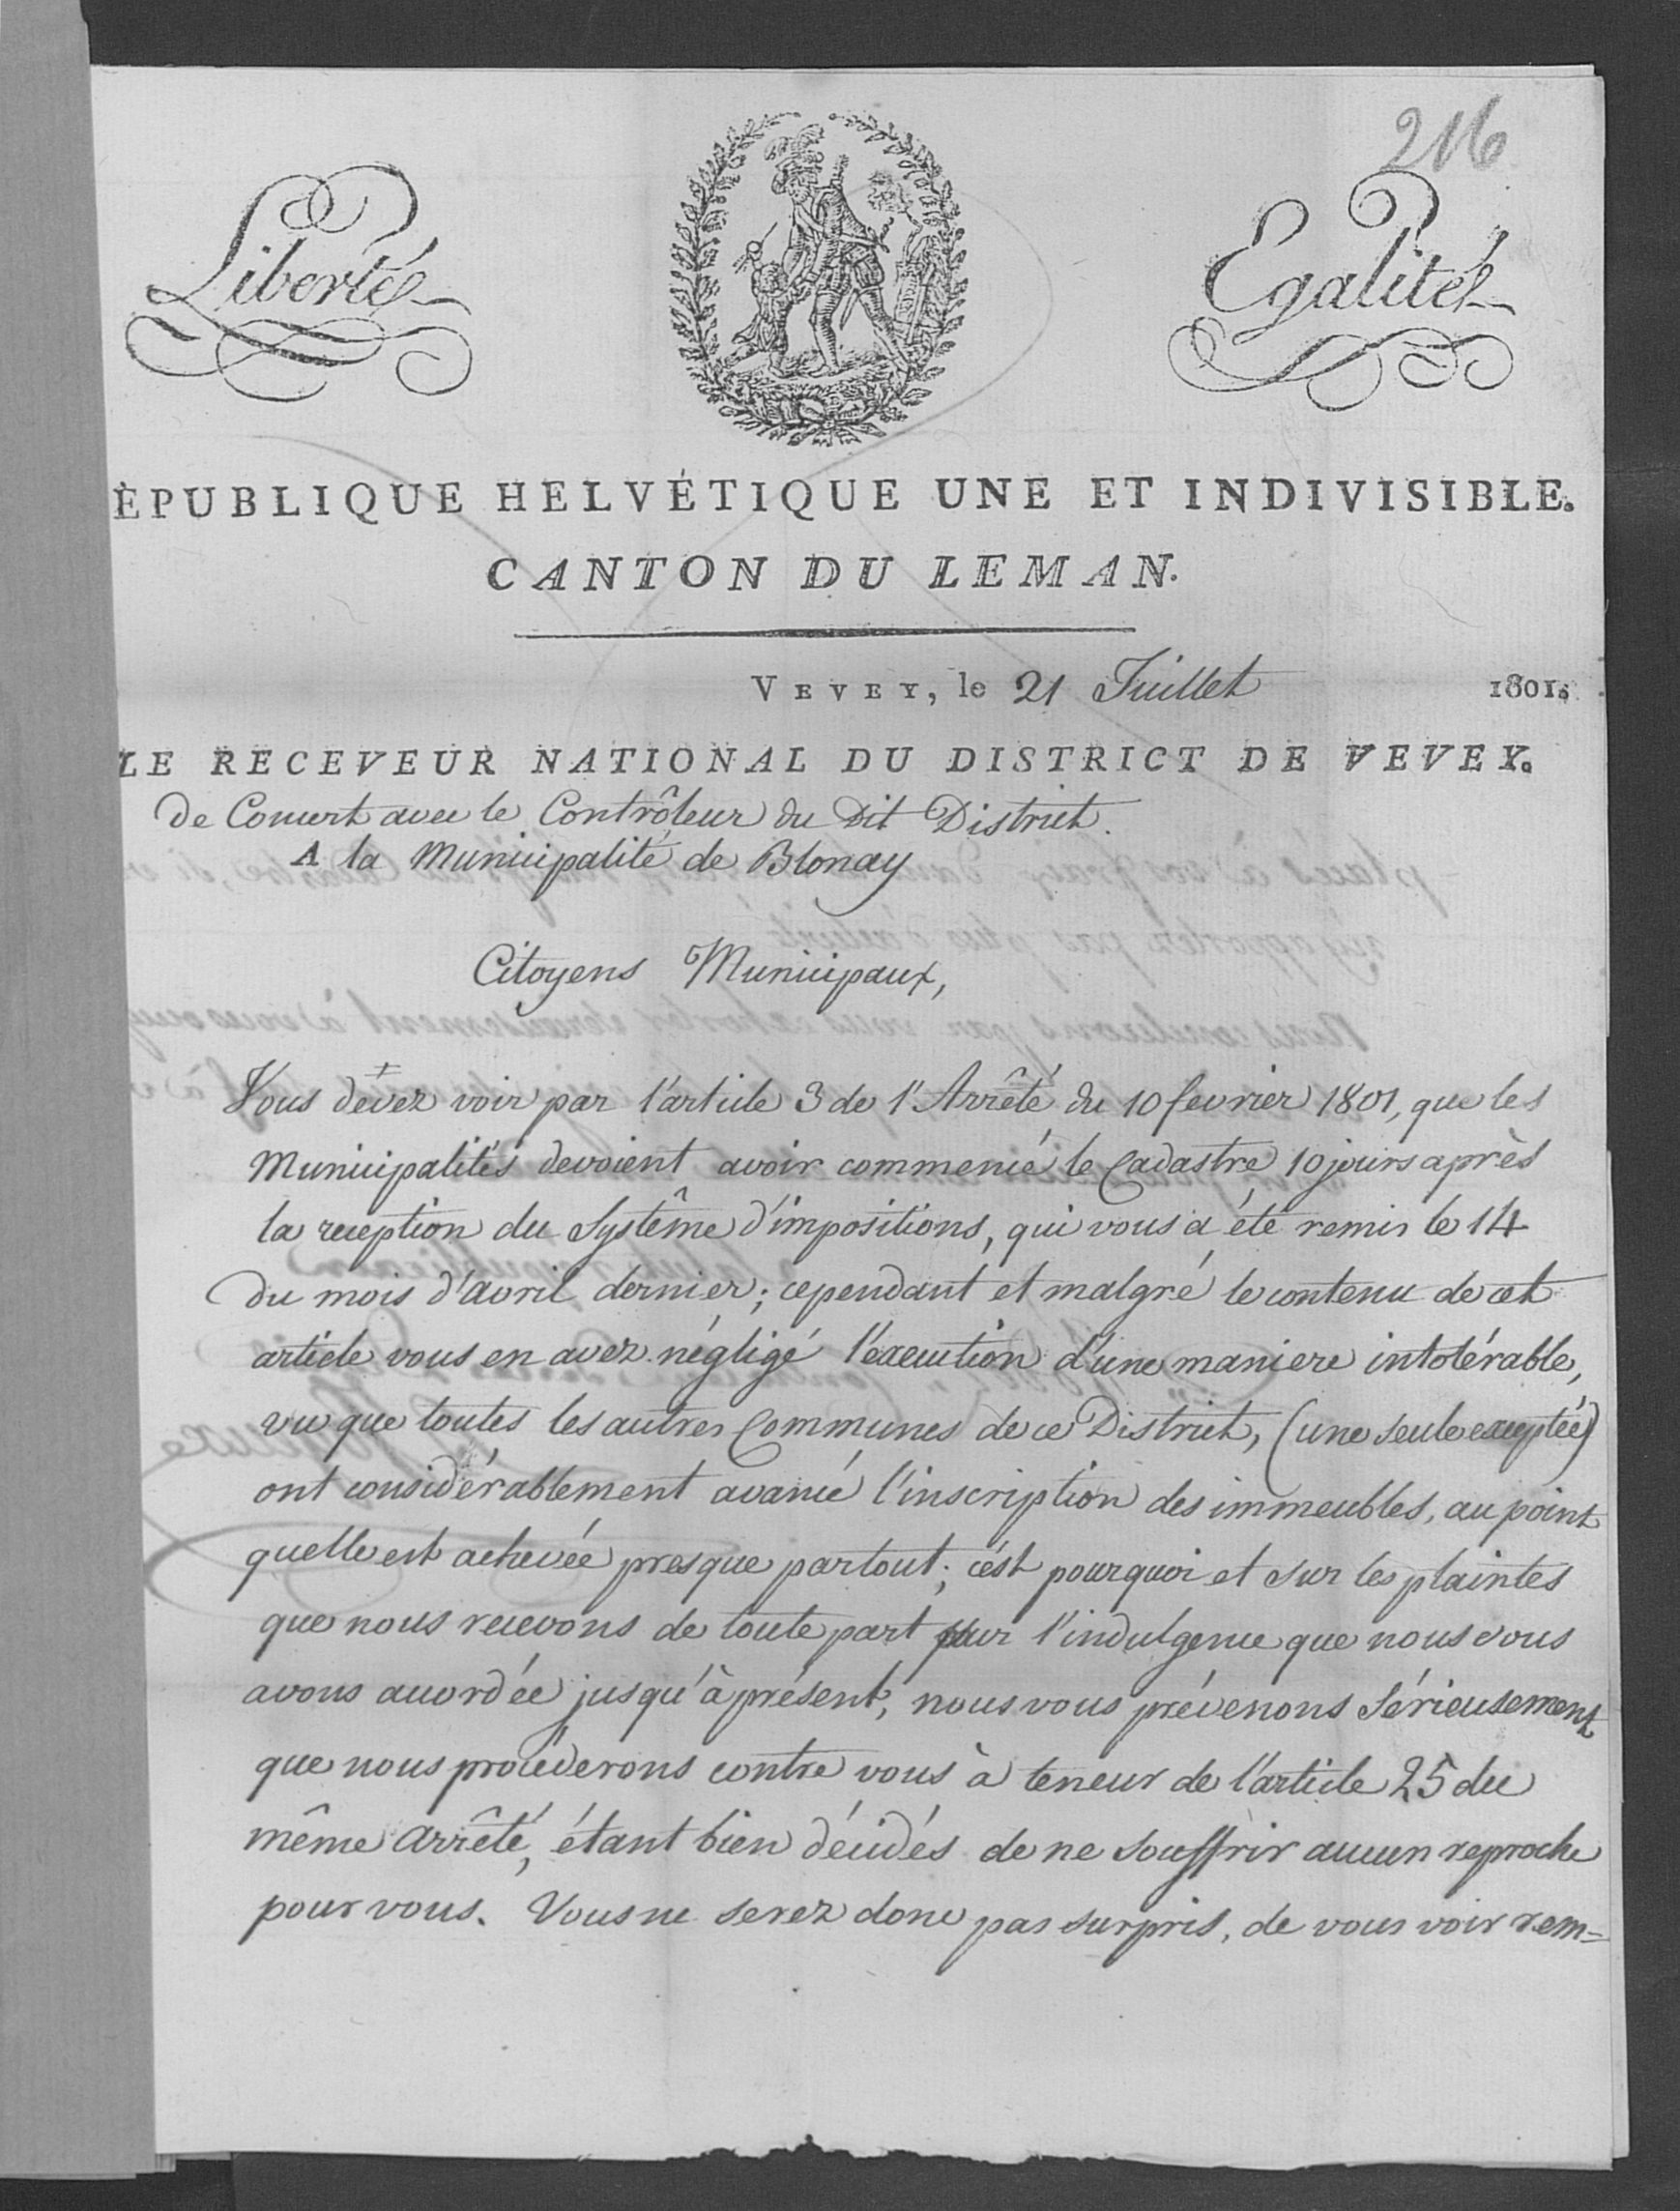 216
Liberté
Egalité
ÉPUBLIQUE HELVÉTIQUE UNE ET INDIVISIBLE.
CANTON DU LEMAN.
VEVEY, le 21 Juillet 1801.
LE RECEVEUR NATIONAL DU DISTRICT DE VEVEY.
de Concert avec le Contrôleur du Dit District.
A la Municipalité de Blonay
Citoyens Municipaux,
Vous devez voir par l'article 3 de l'Arrêté du 10 fevrier 1801, que les
Municipalités devoient avoir commencé le Cadastre 10 jours après
la reception du Systême d'impositions, qui vous a été remis le 14
du mois d'avril dernier; cependant et malgré le contenu de cet
article vous en avez négligé l'éxecution d'une maniere intolérable,
vu que toutes les autres Communes de ce District, (une seule exceptée)
ont considérablement avancé l'inscription des immeubles, au point
quelle est achevée presque partout; c'est pourquoi et sur les plaintes
que nous recevons de toute part pour l'indulgence que nous vous
avons accordée jusqu'à présent, nous vous prévenons Sérieusement
que nous procéderons contre vous à teneur de l'article 25 du
même Arrêté, étant bien décidés de ne souffrir aucun reproche
pour vous. Vous ne serez donc pas surpris, de vous voir rem=